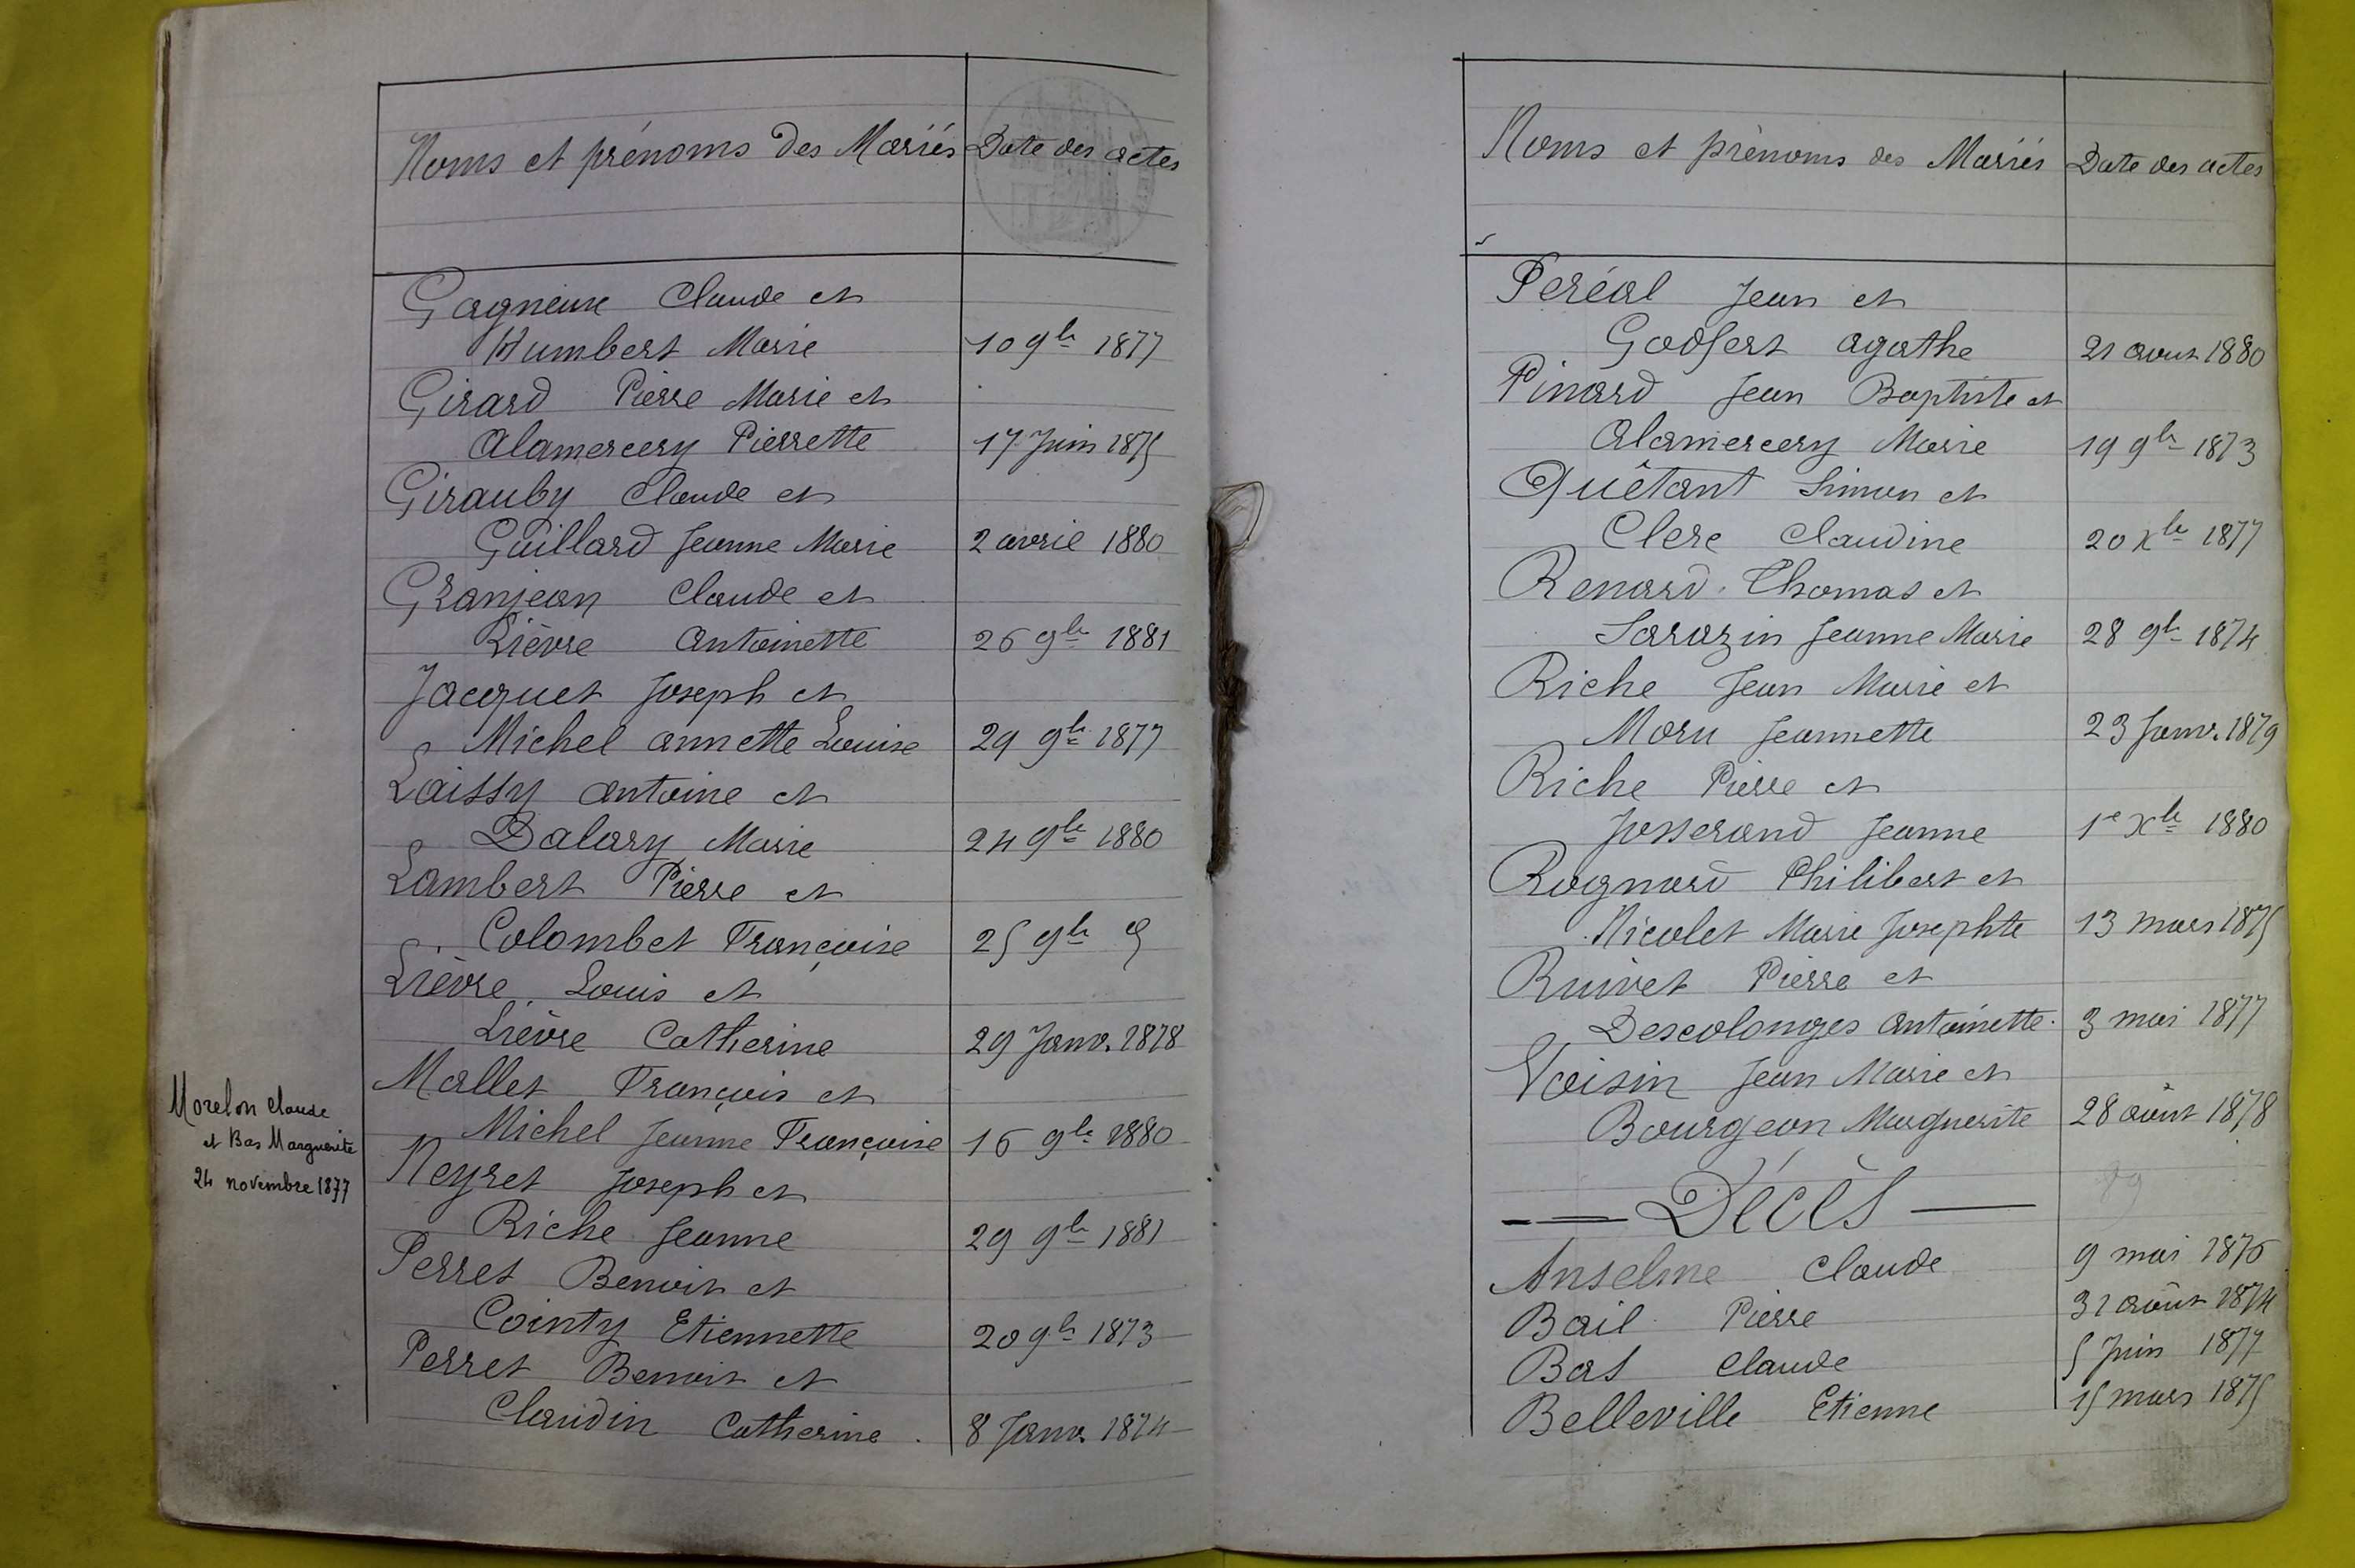 Noms et prénoms des Mariés Date des actes
Gagneure Claude et
Humbert Marie 10 9bre 1877
Girard Pierre Marie et
Alamercery Pierrette 17 Juin 1875
Girauby Claude et
Guillard Jeanne Marie 2 avril 1880
Granjean Claude et
Lièvre Antoinette 26 9bre 1881
Jacquet Joseph et
Michel annette Louise 29 9bre 1877
Laissy Antoine et
Dalary Marie 24 9bre 1880
Lambert Pierre et
Colombet Françoise 25 9bre d
Lièvre Louis et
Lièvre Catherine 29 Janv. 1878
Mallet François et
Michel Jeanne Françoise 16 9bre 1880
Neyret Joseph et
Riche Jeanne 29 9bre 1881
Perret Benoit et
Cointy Etiennette 20 9bre 1873
Perret Benoit et
Claudin Catherine 8 Janv. 1874
Morelon Claude
et Bas Marguerite
24 novembre 1877
Noms et prénoms des Mariés Date des actes
Peréal Jean et
Godfert agathe 21 aout 1880
Pinard Jean Baptiste et
Alamercery Marie 19 9bre 1873
Quêtant Simon et
Clerc Claudine 20 Xbre 1877
Renard Thomas et
Sarazin Jeanne Marie 28 9bre 1874
Riche Jean Marie et
Moru Jeannette 23 Janv. 1879
Riche Pierre et
Josserand Jeanne 1e Xbre 1880
Rognard Philibert et
Nicolet Marie Josephte 13 mars 1875
Ruivet Pierre et
Descolonges Antoinette 3 mai 1877
Voisin Jean Marie et
Bourgeon Marguerite 28 août 1878
Décès
Anselme Claude 9 mai 1876
Bail Pierre 31 août 1874
Bas Claude 5 Juin 1877
Belleville Etienne 15 mars 1875